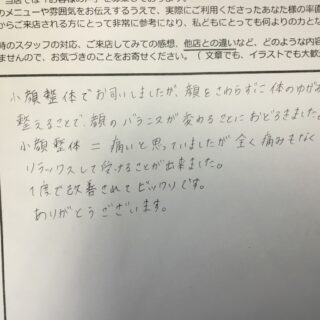 のメニューや雰囲気をお伝えするうえで、実際にご利用くださったあなた様の率直
からご来店される方にとって非常に参考になり、私どもにとっても何よりの力とな
時のスタッフの対応、ご来店してみての感想、他店との違いなど、どのような内容
ませんので、お気づきのことをお寄せください。（文章でも、イラストでも大歓
小顔整体でお伺いしましたが、顔をさわらずに体のゆがみ
整えることで、顔のバランスが変わることにおどろきました。
小顔整体＝痛いと思っていましたが全く痛みもなく
リラックスして受けることが出来ました。
1度で改善されてビックリです。
ありがとうございます。